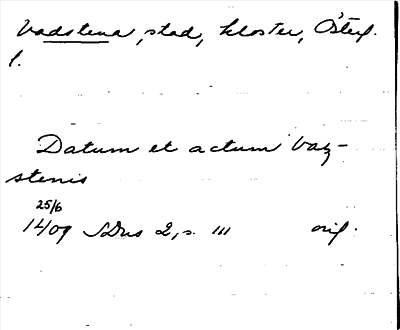 Vadstena, stad, kloster, Österg.
l.
Datum et actum Vaz-
stenis
25/6
1409 SDns 2, s. 111 orig.